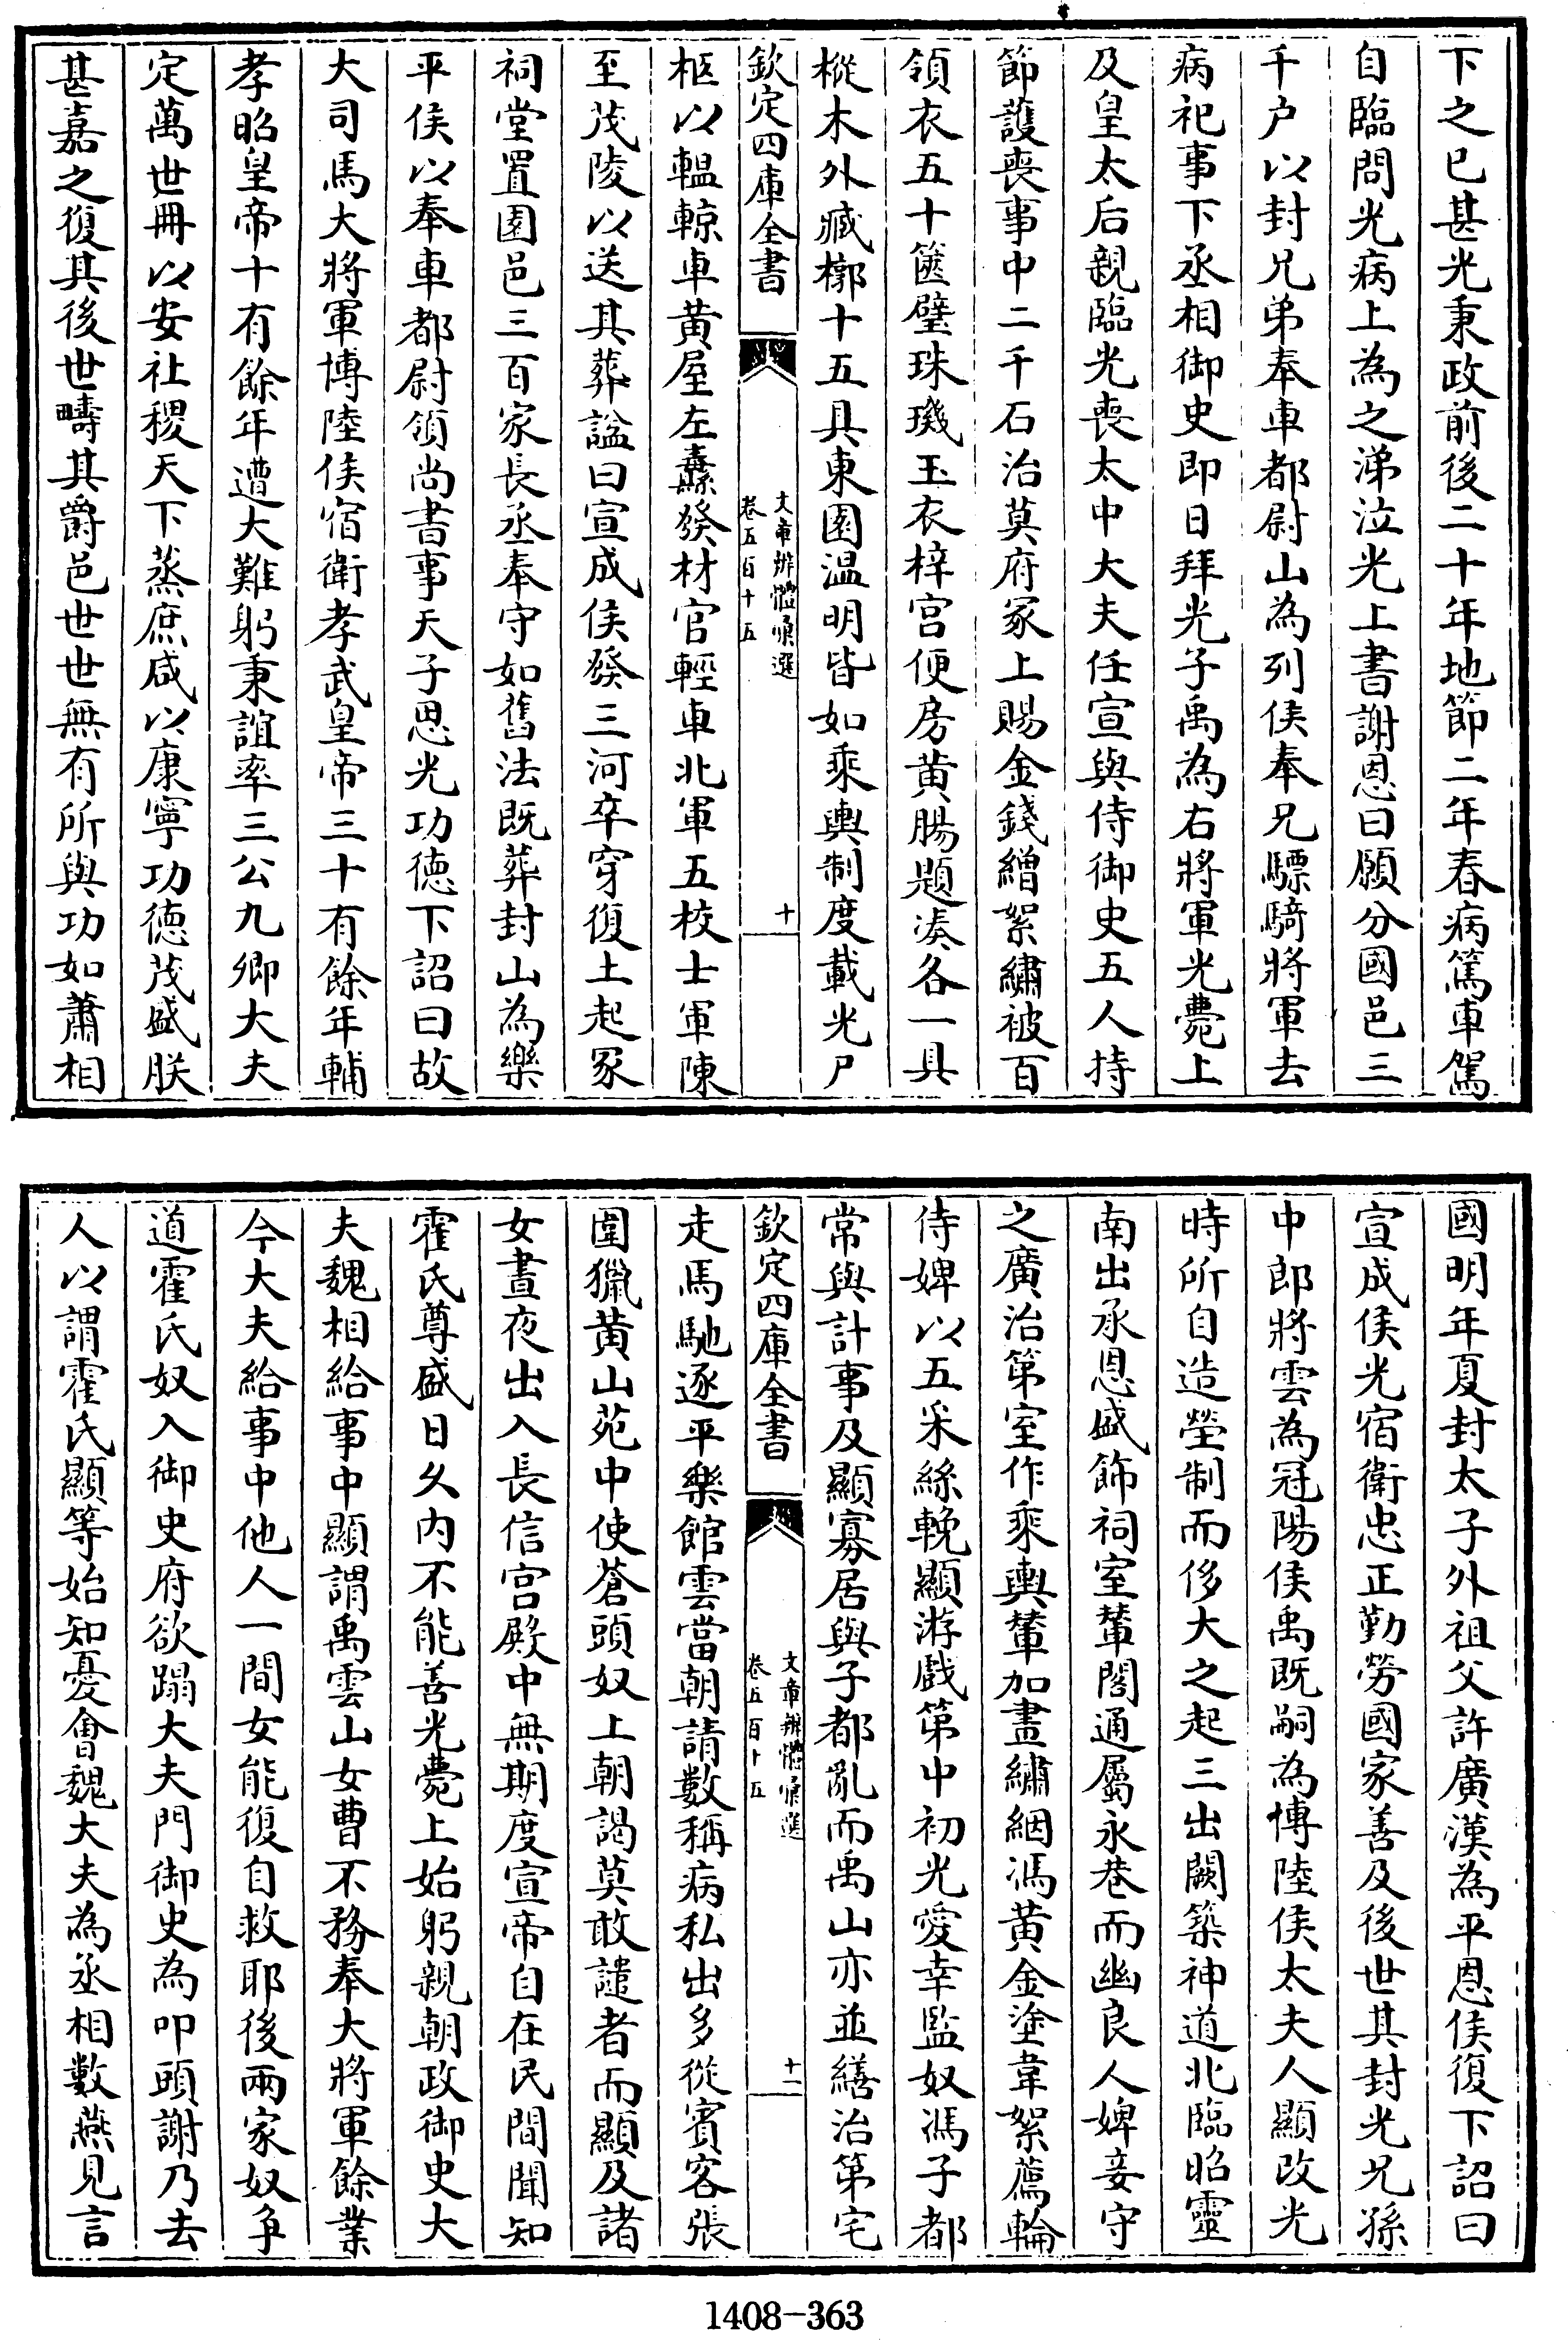 下之已甚光秉政前後二十年地節二年春病篤車駕
自臨問光病上為之涕泣光上書謝恩曰願分國邑三
千户以封兄弟奉車都尉山為列侯奉兄驃騎將軍去
病祀事下丞相御史即日拜光子禹為右將軍光薨上
及皇太后親臨光喪太中大夫任宣與侍御史五人持
節護喪事中二千石治莫府冢上賜金錢繒絮繡被百
領衣五十篋璧珠璣玉衣梓宮便房黄腸題湊各一具
樅木外臧槨十五具東園温明皆如乘輿制度載光尸
欽定四庫全書
文章辨體彙選
卷五百十五
十
柩以轀輬車黄屋左纛發材官輕車北軍五校士軍陳
至茂陵以送其葬諡曰宣成侯發三河卒穿復土起冢
祠堂置園邑三百家長丞奉守如舊法既葬封山為樂
平侯以奉車都尉領尚書事天子思光功徳下詔曰故
大司馬大將軍博陸侯宿衛孝武皇帝三十有餘年輔
孝昭皇帝十有餘年遭大難躬秉誼率三公九卿大夫
定萬世冊以安社稷天下蒸庶咸以康寧功徳茂盛朕
甚嘉之復其後世疇其爵邑世世無有所與功如蕭相
國明年夏封太子外祖父許廣漢為平恩侯復下詔曰
宣成侯光宿衛忠正勤勞國家善善及後世其封光兄孫
中郎將雲為冠陽侯禹既嗣為博陸侯太夫人顯改光
時所自造塋制而侈大之起三出闕築神道北臨昭靈
南出承恩盛飾祠室輦閣通屬永巷而幽良人婢妾守
之廣治第室作乘輿輦加畫繡絪馮黄金塗韋絮薦輪
侍婢以五采絲輓顯游戲第中初光愛幸監奴馮子都
常與計事及顯寡居與子都亂而禹山亦並繕治第宅
欽定四庫全書
文章辨體彙選
卷五百十五
十一
走馬馳逐平樂館雲當朝請數稱病私出多從賓客張
圍獵黄山苑中使蒼頭奴上朝謁莫敢譴者而顯及諸
女晝夜出入長信宫殿中無期度宣帝自在民間聞知
霍氏尊盛日久内不能善光薨上始躬親朝政御史大
夫魏相給事中顯謂禹雲山女曹不務奉大將軍餘業
今大夫給事中他人一間女能復自救耶後兩家奴争
道霍氏奴入御史府欲蹋大夫門御史為叩頭謝乃去
人以謂霍氏顯等始知憂會魏大夫為丞相數燕見言
1408-363